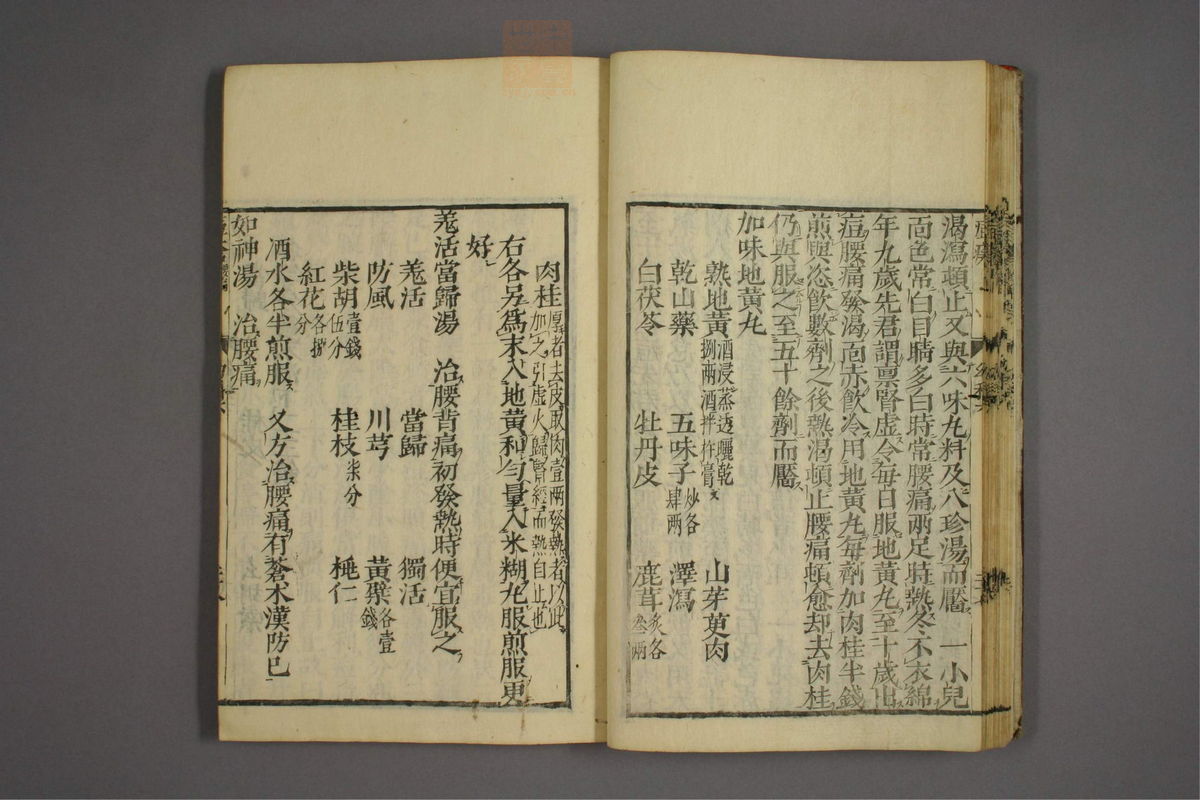 渴瀉頓止又與六味丸料及八珍湯而靨 一小兒
面色常白目睛多白時常腰痛兩足時熱冬不衣綿
年九歲先君謂禀腎虛令每日服地黃丸至十歲出
痘腰痛發渴面赤飲冷用地黃丸每劑加肉桂半錢
煎與恣飲數劑之後熱渴頓止腰痛頓愈却去肉桂
仍與服之至五十餘劑而靨
加味地黃丸
熟地黃捌兩酒浸蒸透曬乾酒拌杵膏 山茱萸肉
乾山藥 五味子炒各肆兩 澤瀉
白茯苓 牡丹皮 鹿茸炙各叁兩
肉桂厚者去皮取肉壹兩發熱者以此加之引虛火歸腎經而熱自止也
右各另爲末入地黃和勻量入米糊丸服煎服更
好
羗活當歸湯 治腰背痛初發熱時便宜服之
羗活 當歸 獨活
防風 川芎 黃蘗各壹錢
柴胡壹錢伍分 桂枝柒分 桃仁
紅花各捌分
酒水各半煎服 又方治腰痛有蒼朮漢防巳
如神湯 治腰痛